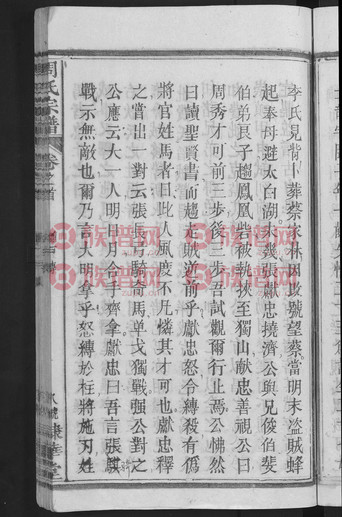 李氏見背卜葬蔡家林因改號望蔡當明末盜賊蜂
起奉母避太白湖未幾張獻忠撓濟公與兄俊伯斐
伯弟良子趨鳳凰砦被執挾至獨山獻忠善視公曰
周秀才可前三步後三步吾試觀爾行止焉公怫然
曰讀聖賢書而趨走賊逆前乎獻忠怒令縛殺有僞
將官姓馬者曰此人風度不凡憐其才可也獻忠釋
之嘗出一對云張長弓騎奇馬单戈獨戰强公對之
公應云大一人明日月合手齊拿獻忠曰吾言張騏
戰示無敵也爾乃言大明拿乎怒縛於柱將施刃姓
周氏宗譜 卷之首
族譜网